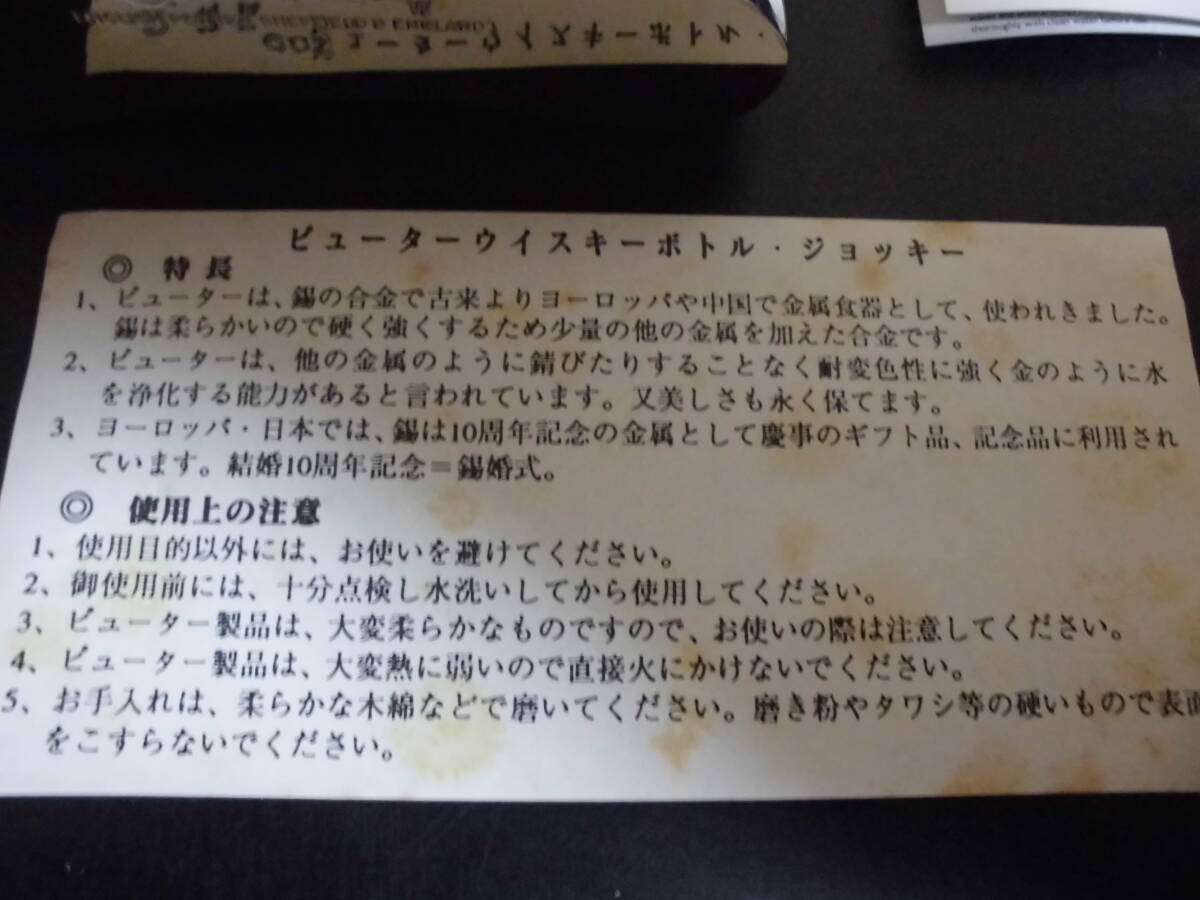 SHEFFIELD ENGLAND
thoroughly with clean water
ピューターウイスキーボトル・ジョッキー
◎ 特長
1、ピューターは、錫の合金で古来よりヨーロッパや中国で金属食器として、使われきました。
錫は柔らかいので硬く強くするため少量の他の金属を加えた合金です。
2、ピューターは、他の金属のように錆びたりすることなく耐変色性に強く金のように水
を浄化する能力があると言われています。又美しさも永く保てます。
3、ヨーロッパ・日本では、錫は10周年記念の金属として慶事のギフト品、記念品に利用され
ています。結婚10周年記念＝錫婚式。
◎ 使用上の注意
1、使用目的以外には、お使いを避けてください。
2、御使用前には、十分点検し水洗いしてから使用してください。
3、ピューター製品は、大変柔らかなものですので、お使いの際は注意してください。
4、ピューター製品は、大変熱に弱いので直接火にかけないでください。
5、お手入れは、柔らかな木綿などで磨いてください。磨き粉やタワシ等の硬いもので表面
をこすらないでください。